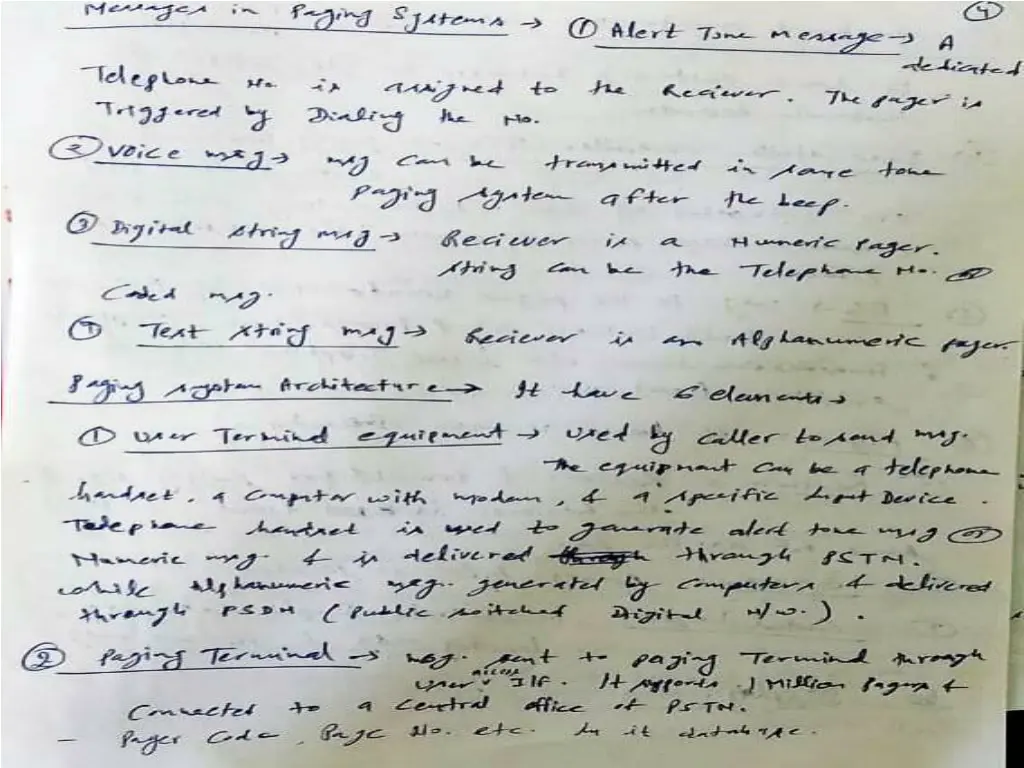 Messages in Paging Systems → ① Alert Tone Message → A
④
dedicated
Telephone No. is assigned to the Reciever. The pager is
Triggered by Dialing the No.
② Voice msg → msg can be transmitted in same tone
paging system after the beep.
③ Digital string msg → Reciever is a Numeric Pager.
string can be the Telephone No. or
Coded msg.
④ Text string msg → Reciever is an Alphanumeric pager.
Paging system Architecture → It have 6 elements →
① User Terminal equipment → Used by caller to send msg.
The equipment can be a telephone
handset, a computer with modem, & a specific Input Device.
Telephone handset is used to generate alert tone msg or
Numeric msg. & is delivered through PSTN.
while Alphanumeric msg. generated by Computers & delivered
through PSDN (Public switched Digital N/w.).
② Paging Terminal → msg. sent to paging Terminal through
user access I/f. It supports 1 Million Pagers &
Connected to a Central office of PSTN.
- Pager Code, Page No. etc. in it database.